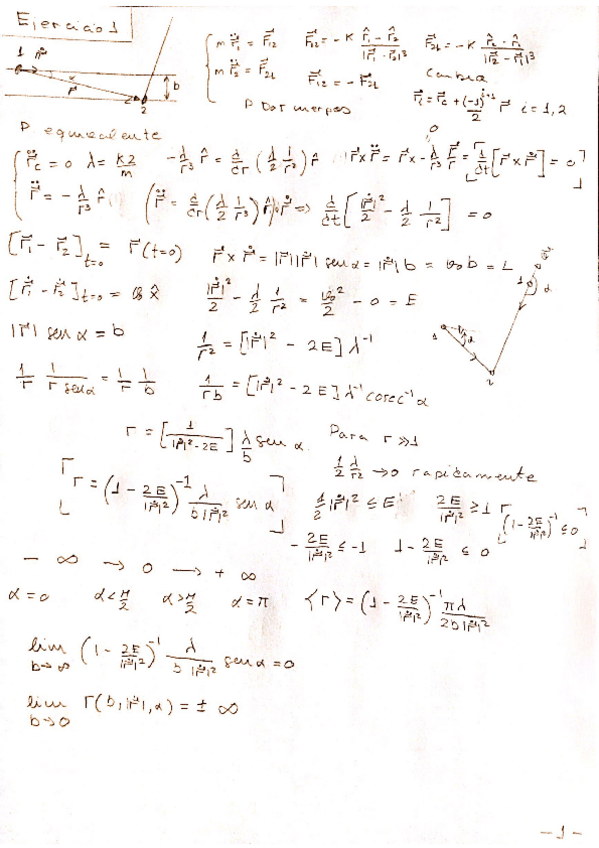 Ejercicio 1
1 r⃗ b r⃗ 2
{ m r̈⃗₁ = F⃗₁₂  F⃗₁₂ = -K (r̂₁ - r̂₂)/|r⃗₁ - r⃗₂|³  F⃗₂₁ = -K (r̂₂ - r̂₁)/|r⃗₂ - r⃗₁|³
m r̈⃗₂ = F⃗₂₁  F⃗₁₂ = -F⃗₂₁
r⃗ᵢ = r⃗c + (-1)^(i+1)/2 r⃗  i = 1, 2
P equivalente
{ r̈⃗c = 0  λ = K2/m  -λ/r³ r̂ = d/dr (λ/2 1/r²) r̂  r⃗ × r̈⃗ = r⃗ × -λ/r³ r⃗/r = [d/dt [r⃗ × ṙ⃗] = 0]
r̈⃗ = -λ/r³ r̂  (r̈⃗ = d/dr (λ/2 1/r²) r̂) · ṙ⃗ ⇒ d/dt [|ṙ⃗|²/2 - λ/2 1/r²] = 0
[r⃗₁ - r⃗₂]t=0 = r⃗(t=0)  r⃗ × ṙ⃗ = |r⃗||ṙ⃗| sen α = |ṙ⃗| b = v₀ b = L
[ṙ⃗₁ - ṙ⃗₂]t=0 = v₀ x̂  |ṙ⃗|²/2 - λ/2 1/r² = v₀²/2 - 0 = E
1 α 2
1 α 2
|r⃗| sen α = b  1/r² = [|ṙ⃗|² - 2E] λ⁻¹
1/r 1/(r sen α) = 1/r 1/b  1/(rb) = [|ṙ⃗|² - 2E] λ⁻¹ cosec⁻¹ α
r = [1/(|ṙ⃗|² - 2E)] λ/b sen α.  Para r ≫ 1
1/2 λ/r² → 0 rapidamente
[r = (1 - 2E/|ṙ⃗|²)⁻¹ λ/(b|ṙ⃗|²) sen α]  1/2 |ṙ⃗|² ≤ E  2E/|ṙ⃗|² ≥ 1  [(1 - 2E/|ṙ⃗|²)⁻¹ ≤ 0]
-2E/|ṙ⃗|² ≤ -1  1 - 2E/|ṙ⃗|² ≤ 0
- ∞ → 0 → + ∞
α = 0  α < π/2  α > π/2  α = π  ⟨r⟩ = (1 - 2E/|ṙ⃗|²)⁻¹ πλ/(2b|ṙ⃗|²)
lim b→∞ (1 - 2E/|ṙ⃗|²)⁻¹ λ/(b |ṙ⃗|²) sen α = 0
lim b→0 r(b, |ṙ⃗|, α) = ± ∞
- 1 -